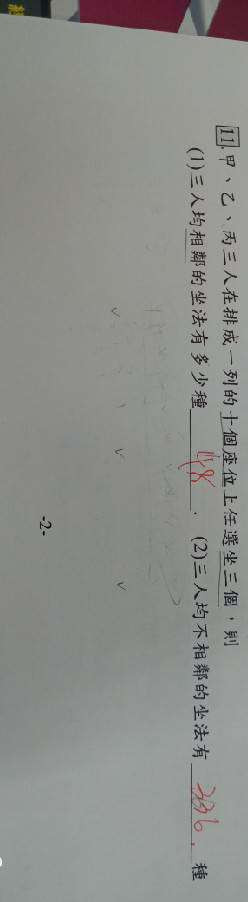 11.甲、乙、丙三人在排成一列的十個座位上任選坐三個，則
(1)三人均相鄰的坐法有多少種 48 . (2)三人均不相鄰的坐法有 336 . 種
-2-